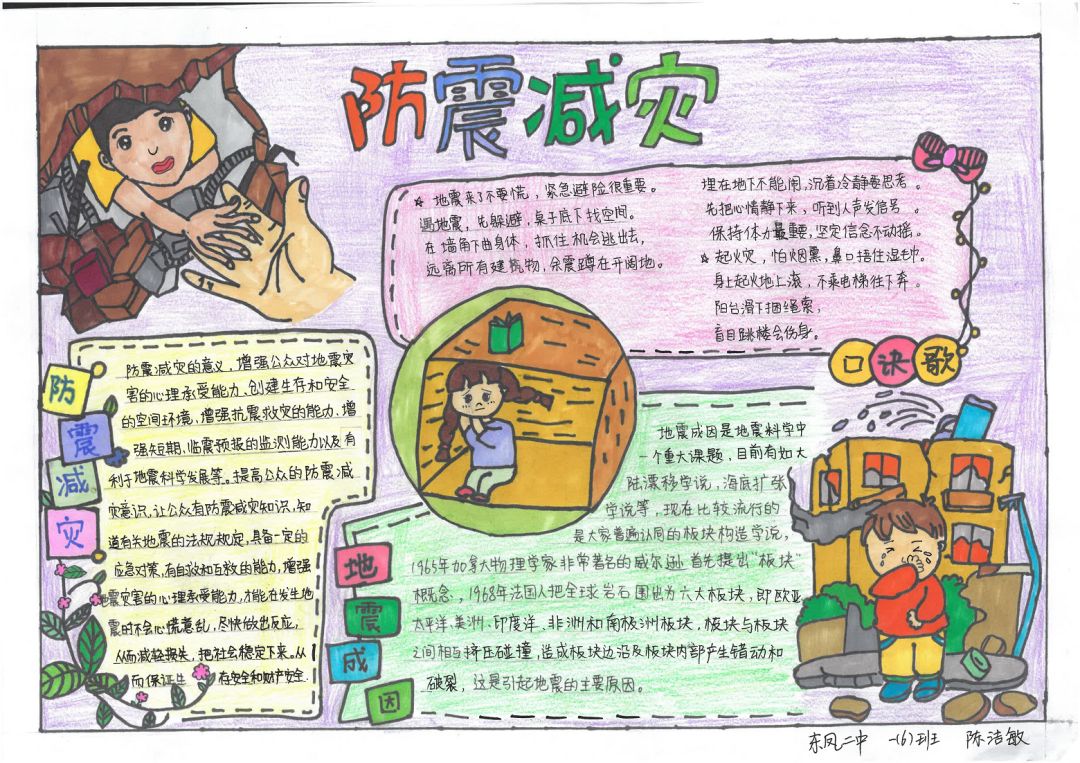 防震减灾
★ 地震来了不要慌，紧急避险很重要。
遇地震，先躲避，桌子底下找空间。
在墙角下曲身体，抓住机会逃出去，
远离所有建筑物，余震蹲在开阔地。
埋在地下不能闹，沉着冷静要思考。
先把心情静下来，听到人声发信号。
保持体力最重要，坚定信念不动摇。
★ 起火灾，怕烟熏，鼻口捂住湿毛巾。
身上起火地上滚，不乘电梯往下奔。
阳台滑下捆绳索，
盲目跳楼会伤身。
口诀歌
防震减灾
防震减灾的意义，增强公众对地震灾
害的心理承受能力、创建生存和安全
的空间环境，增强抗震救灾的能力、增
强短期、临震预报的监测能力以及有
利于地震科学发展等。提高公众的防震减
灾意识，让公众有防震减灾知识，知
道有关地震的法规规定，具备一定的
应急对策，有自救和互救的能力，增强
地震灾害的心理承受能力，才能在发生地
震时不会心慌意乱，尽快做出反应，
从而减轻损失，把社会稳定下来。从
而保证生存安全和财产安全.
地震成因
地震成因是地震科学中
一个重大课题，目前有如大
陆漂移学说，海底扩张
学说等，现在比较流行的
是大家普遍认同的板块构造学说，
1965年加拿大物理学家非常著名的威尔逊首先提出"板块"
概念，1968年法国人把全球岩石圈出为六大板块，即欧亚
太平洋、美洲、印度洋、非洲和南极洲板块，板块与板块
之间相互挤压碰撞，造成板块边沿及板块内部产生错动和
破裂，这是引起地震的主要原因。
东凤二中 一(6)班 陈洁敏